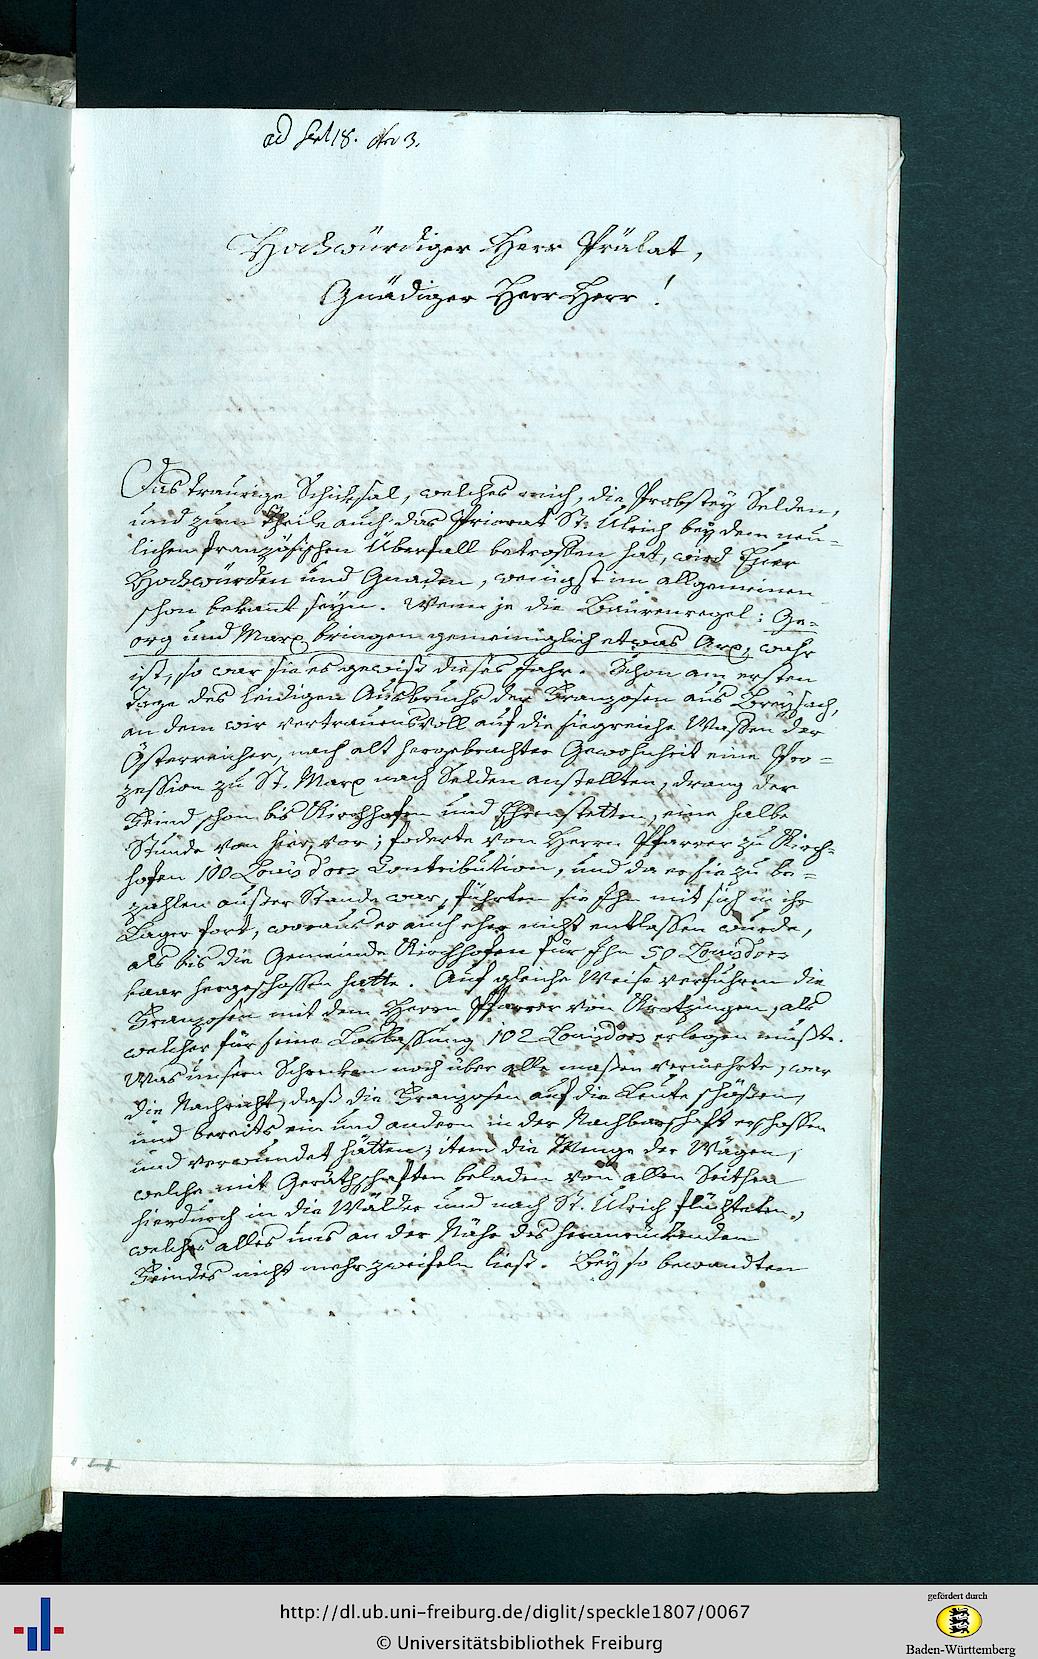 ad Sect 18. Nro 3.
Hochwürdiger Herr Prälat,
Gnädiger Herr Herr!
Das traurige Schicksal, welches mich, die Probstey Selden,
und zum Theile auch das Priorat St. Ulrich bey dem neu=
lichen französischen Überfall betroffen hat, wird Euer
Hochwürden und Gnaden, wenigst im allgemeinen
schon bekannt seyn. Wenn je die Baurenregel: Ge=
org und Marx bringen gemeiniglich etwas Arx, wahr
ist, so war sie es gewiß dieses Jahr. Schon am ersten
Tage des leidigen Ausbruchs der Franzosen aus Breysach,
an dem wir vertrauensvoll auf die siegreiche Waffen der
Österreicher, nach alt hergebrachter Gewohnheit eine Pro=
zession zu St. Marx nach Selden anstellten, drang der
Feind schon bis Kirchhofen und Ehrenstetten, eine halbe
Stunde von hier, vor; foderte von Herrn Pfarrer zu Kirch=
hofen 100 Louisdors Contribution, und da er sie zu be=
zahlen außer Stande war, führten sie Ihn mit sich in ihr
Lager fort, woraus er auch eher nicht entlassen wurde,
als bis die Gemeinde Kirchhofen für Ihn 50 Louisdors
baar hergeschossen hatte. Auf gleiche Weise verfuhren die
Franzosen mit dem Herrn Pfarrer von Krotzingen, als
welcher für seine Loslassung 102 Louisdors erlegen mußte.
Was unsern Schrecken noch über alle maßen vermehrte, war
die Nachricht, daß die Franzosen auf die Leute schößen,
und bereits ein und andern in der Nachbarschaft erschossen
und verwundet hätten; item die Menge der Wägen,
welche mit Geräthschaften beladen von allen Seithen
hierdurch in die Wälder und nach St. Ulrich flüchteten,
welches alles uns an der Nähe des heranrückenden
Feindes nicht mehr zweifeln ließ. Bey so bewandten
http://dl.ub.uni-freiburg.de/diglit/speckle1807/0067
© Universitätsbibliothek Freiburg
gefördert durch
Baden-Württemberg